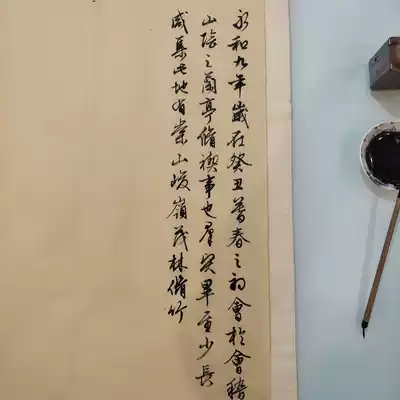 永和九年歲在癸丑暮春之初會於會稽
山陰之蘭亭脩禊事也羣賢畢至少長
咸集此地有崇山峻嶺茂林脩竹